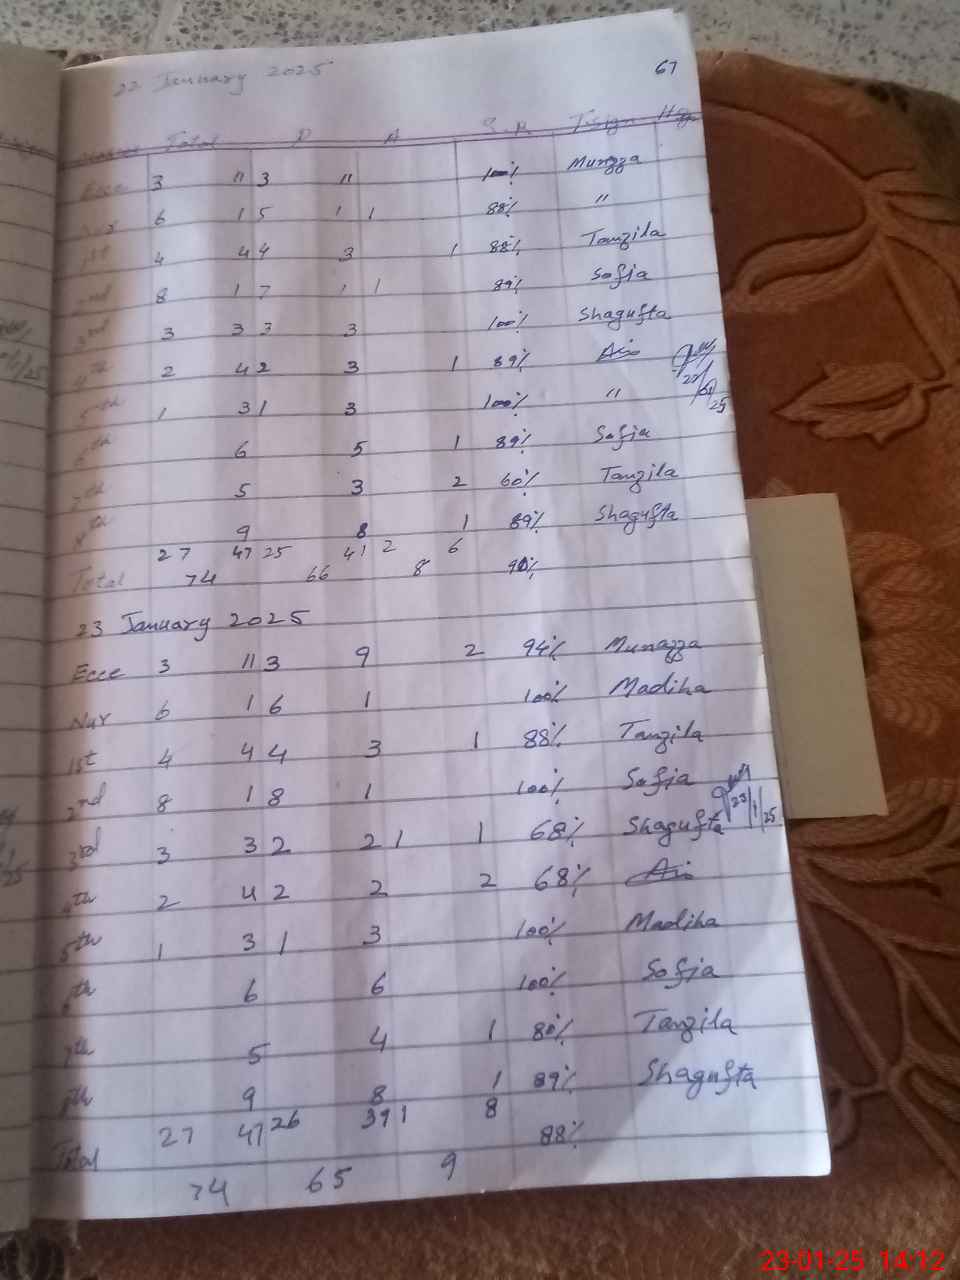 22 January 2025
67
Total P A S.R T.sign
Ecce 3 11 3 11 100% Munazza
Nur 6 1 5 1 1 88% "
1st 4 4 4 3 1 88% Tanzila
2nd 8 1 7 1 1 89% Sofia
3rd 3 3 3 3 100% Shagufta
4th 2 4 2 3 1 89%
5th 1 3 1 3 100% "
6th 6 5 1 89% Sofia
7th 5 3 2 60% Tanzila
8th 9 8 1 89% Shagufta
27 47 25 41 2 6
Total 74 66 8 90%
23 January 2025
Ecce 3 11 3 9 2 94% Munazza
Nur 6 1 6 1 100% Madiha
1st 4 4 4 3 1 88% Tanzila
2nd 8 1 8 1 100% Sofia
23/1/25
3rd 3 3 2 2 1 1 68% Shagufta
4th 2 4 2 2 2 68%
5th 1 3 1 3 100% Madiha
6th 6 6 100% Sofia
7th 5 4 1 80% Tanzila
8th 9 8 1 89% Shagufta
27 47 26 39 1 8
Total 88%
74 65 9
23-01-25 14:12